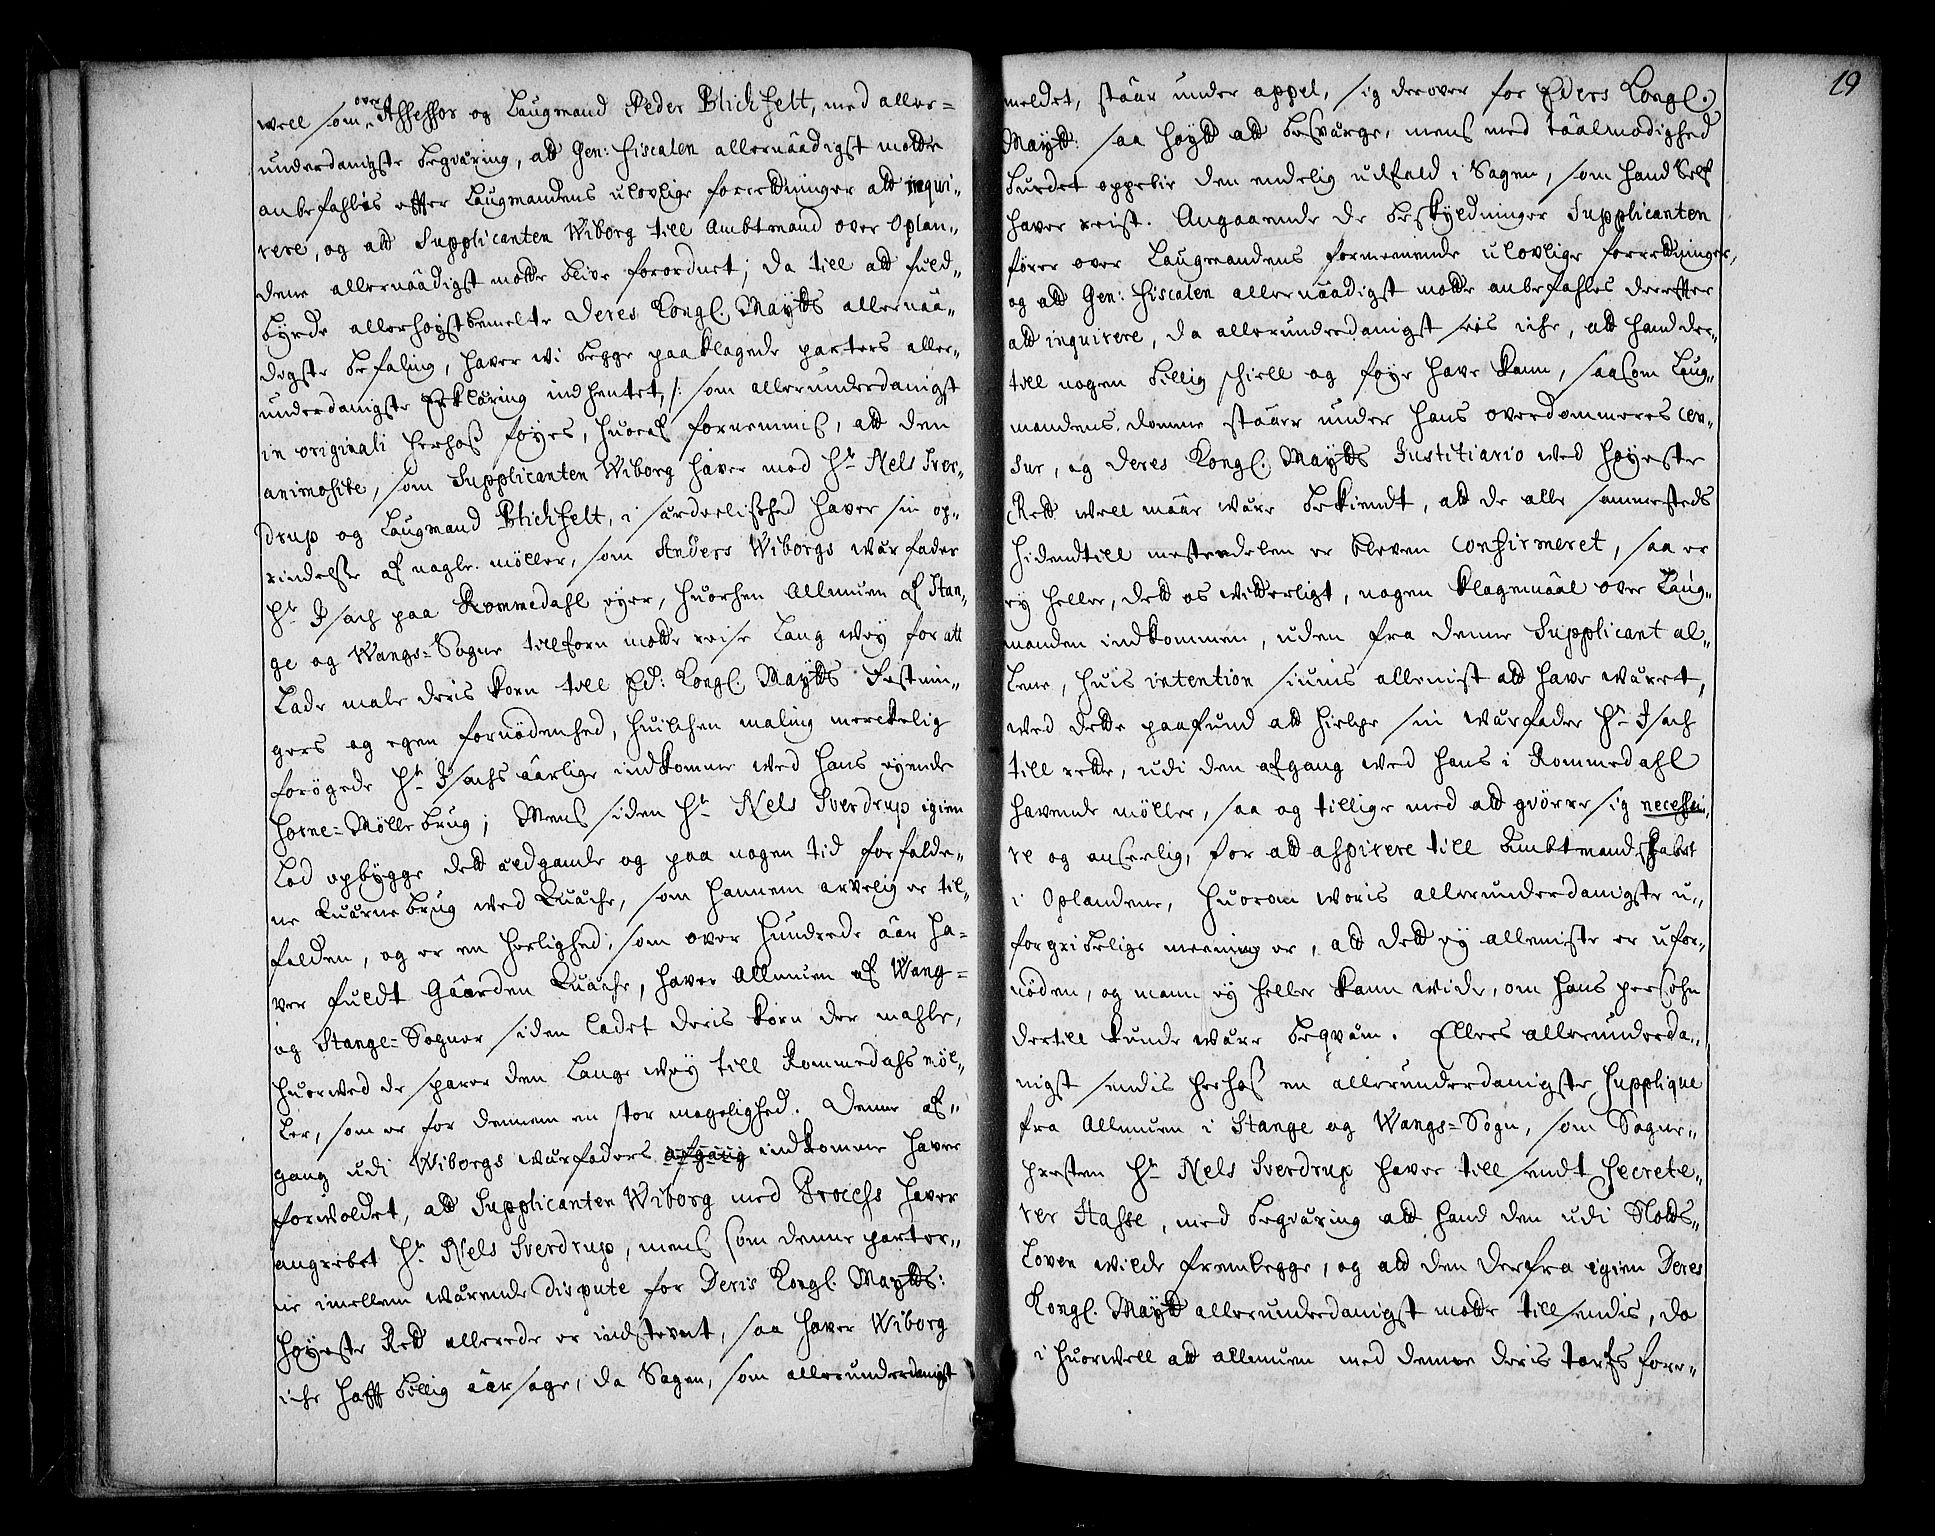 well som over Assessor og Laugmand Peder Blichfelt, med aller=
underdanigste begiæring, att Gen: Fiscalen allernåådigst motte
anbefahlis effter Laugmandens ulovlige forrettninger att inqui„
rere, og att Supplicanten Wiborg till Ambtmand over Oplan„
dene allernåådigst motte blive forordnet; da till att fuld„
byrde allerhøystbemelte Deres Kongl. Maytts allernåå„
digste befaling, haver wi begge paaklagede parters aller„
underdanigste Erklæring indhentet, /: som allerunderdanigst
in originali herhos føyes, huoraf fornemmis, att den
animositet, som Supplicanten Wiborg haver mod Hr Nels Sver„
drup og Laugmand Blichfelt, i særdeelished haver sin op„
rindelse af nogle møller, som Anders Wiborgs Wærfader
Hr Isach paa Rommedahl eyer, huorhen Allmuen af Stan„
ge og Wangs=Sogne tillforn motte reise lang wey for att
lade male deris korn till Ed: Kongl. Maytts Festnin„
gers og egen fornødenhed, huilchen maling merckelig
forøgede Hr Isachs åårlige indkomme wed hans eyende
Horne=Mølle brug; Mens siden Hr Nels Sverdrup igien
lod opbygge dett ældgamle og paa nogen tid forfalde„
ne Quærnebrug wed Quåche, som hannem arvelig er til„
falden, og er en herlighed, som over hundrede åår ha=
ver fuldt Gåården Quåche, haver Allmuen af Wang=
og Stange=Sogner siden ladet deris korn der mahle,
huorwed de sparer den lange wey till Rommedals møl„
ler, som er for dennem en stor magelighed. Denne af„
gang udi Wiborgs wærfaders afgang indkomme haver
forvoldet, att Supplicanten Wiborg med Process haver
angrebet Hr Nels Sverdrup, mens som denne parter„
ne imellem wærende dispute for Deris Kongl. Maytts:
Høyeste Rett allerede er indstevnt, saa haver Wiborg
iche hafft billig åårsage, da Sagen, som allerunderdanigst
19
meldet,ståår under appel, sig derover for Eders Kongl.
Maytt: saa høytt att besværge, mens med tåålmodighed
burdet oppebie den endelig udfald i Sagen, som hand self
haver reist. Angaaende de beskyldninger Supplicanten
fører over Laugmandens formeenende ulovlige forrettninger,
og att Gen: Fiscalen allernåådigst motte anbefahles dereffter
att inquirere, da allerunderdanigst sees iche, att hand der„
till nogen billig schiell og føye have kann, saasom Laug„
mandens domme ståår under hans overdommeres cen„
sur, og Deres Kongl. Maytts Justitiario wed høyeste
Rett well måår være bekiendt, att de alle sammesteds
hidendtill mestendelen er bleven confirmeret, saa er
ey heller, dett os witterligt, nogen klagemåål over Laug„
manden indkommen, uden fra denne Supplicant al„
lene, huis intention siunis allenist att have været,
wed dette paafund att hielpe sin wærfader Hr Isach
till rette, udi den afgang wed hans i Rommedahl
havende møller, saa og tillige med att giøre sig necessai„
re og anseelig, for att aspirere till Ambtmandschabet
i Oplandene, huorom woris allerunderdanigste u„
forgribelige meening er, att dett ey alleniste er ufor„
nøden, og mann ey heller kann wide, om hans persohn
dertill kunde være beqvæm. Ellers allerunderda„
nigst sendis herhos en allerunderdanigste Supplique
fra Allmuen i Stange og Wangs=Sogn, som Sogne„
presten Hr Nels Sverdrup haver till sendt Secrete„
rer Hasse, med begiæring att hand den udi Slotts„
Loven wilde fremlegge, og att den derfra igien Deres
Kongl. Maytt allerunderdanigst motte tillsendis, da
i huorwell att allmuen med denne deris tarfs fore„